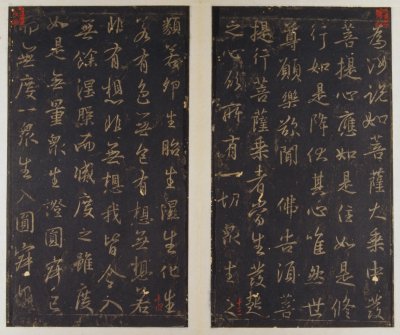 為汝說如菩薩大乘中發
菩提心應如是住如是修
行如是降伏其心唯然世
尊願樂欲聞佛告須菩
提行菩薩乘者當生發趣
之心所有一切衆生之
類若卵生胎生濕生化生
若有色無色有想無想若
非有想非無想我皆令入
無餘涅槃而滅度之雖度
如是無量衆生證圓寂已
而無度一衆生入圓寂